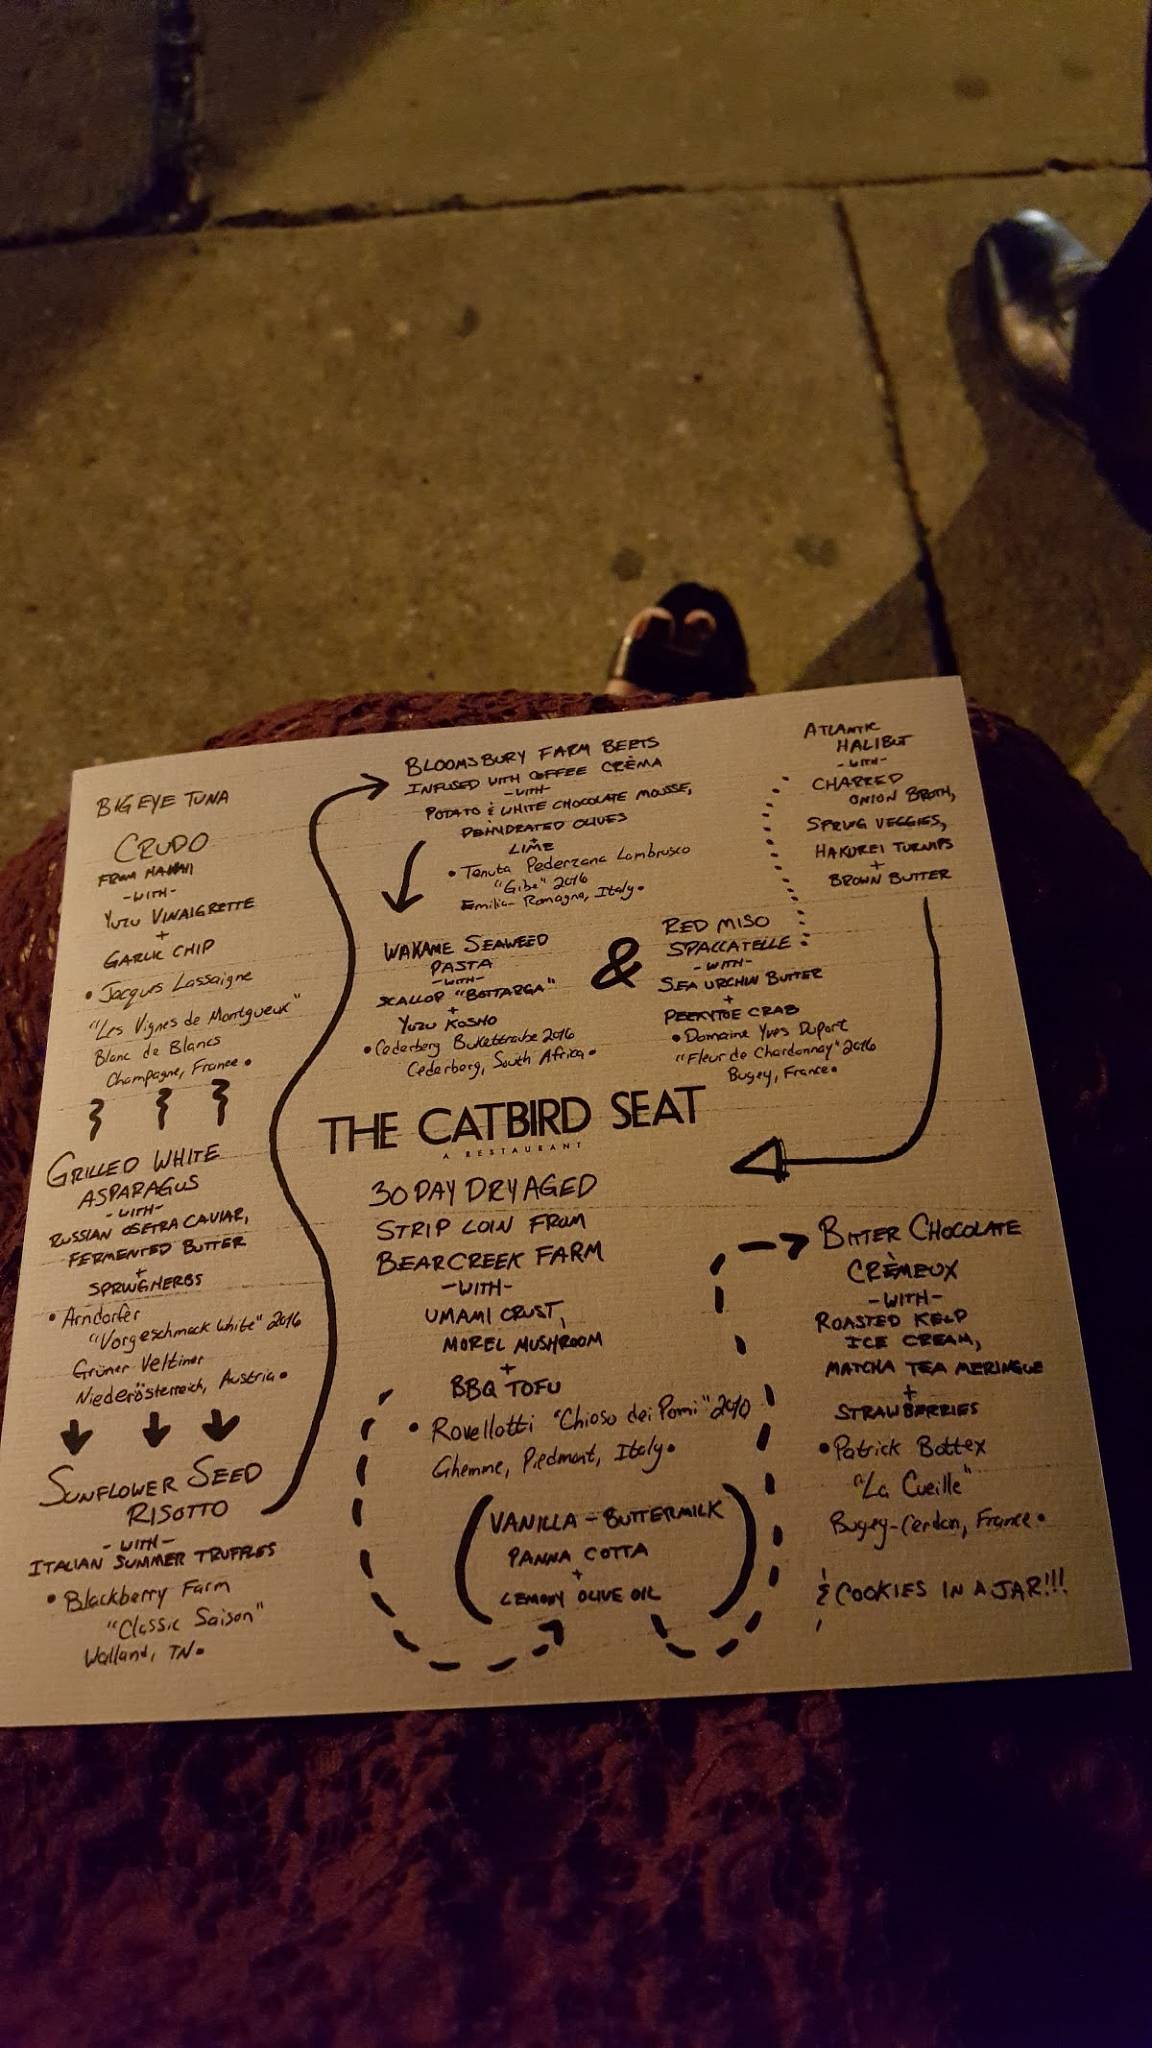 BIG EYE TUNA
CRUDO
FROM HAWAII
-WITH-
YUZU VINAIGRETTE
+
GARLIC CHIP
• Jacques Lassaigne
"Les Vignes de Montgueux"
Blanc de Blancs
Champagne, France •
GRILLED WHITE
ASPARAGUS
-WITH-
RUSSIAN OSETRA CAVIAR,
FERMENTED BUTTER
+
SPRING HERBS
• Arndorfer
"Vorgeschmack White" 2016
Grüner Veltliner
Niederösterreich, Austria •
SUNFLOWER SEED
RISOTTO
-WITH-
ITALIAN SUMMER TRUFFLES
• Blackberry Farm
"Classic Saison"
Walland, TN •
BLOOMSBURY FARM BEETS
INFUSED WITH COFFEE CRÈMA
-WITH-
POTATO & WHITE CHOCOLATE MOUSSE,
DEHYDRATED OLIVES
+
LIME
• Tenuta Pederzana Lambrusco
"Gibe" 2016
Emilia-Romagna, Italy •
WAKAME SEAWEED
PASTA
-WITH-
SCALLOP "BOTTARGA"
+
YUZU KOSHO
• Cederberg Bukettraube 2016
Cederberg, South Africa •
&
RED MISO
SPACCATELLE
-WITH-
SEA URCHIN BUTTER
+
PEEKYTOE CRAB
• Domaine Yves Duport
"Fleur de Chardonnay" 2016
Bugey, France •
ATLANTIC
HALIBUT
-WITH-
CHARRED
ONION BROTH,
SPRING VEGGIES,
HAKUREI TURNIPS
+
BROWN BUTTER
THE CATBIRD SEAT
A RESTAURANT
30 DAY DRY AGED
STRIP LOIN FROM
BEAR CREEK FARM
-WITH-
UMAMI CRUST,
MOREL MUSHROOM
+
BBQ TOFU
• Rovellotti "Chioso dei Pomi" 2010
Ghemme, Piedmont, Italy •
(VANILLA-BUTTERMILK
PANNA COTTA
+
LEMONY OLIVE OIL)
BITTER CHOCOLATE
CRÈMEUX
-WITH-
ROASTED KELP
ICE CREAM,
MATCHA TEA MERINGUE
+
STRAWBERRIES
• Patrick Bottex
"La Cueille"
Bugey-Cerdon, France •
& COOKIES IN A JAR!!!